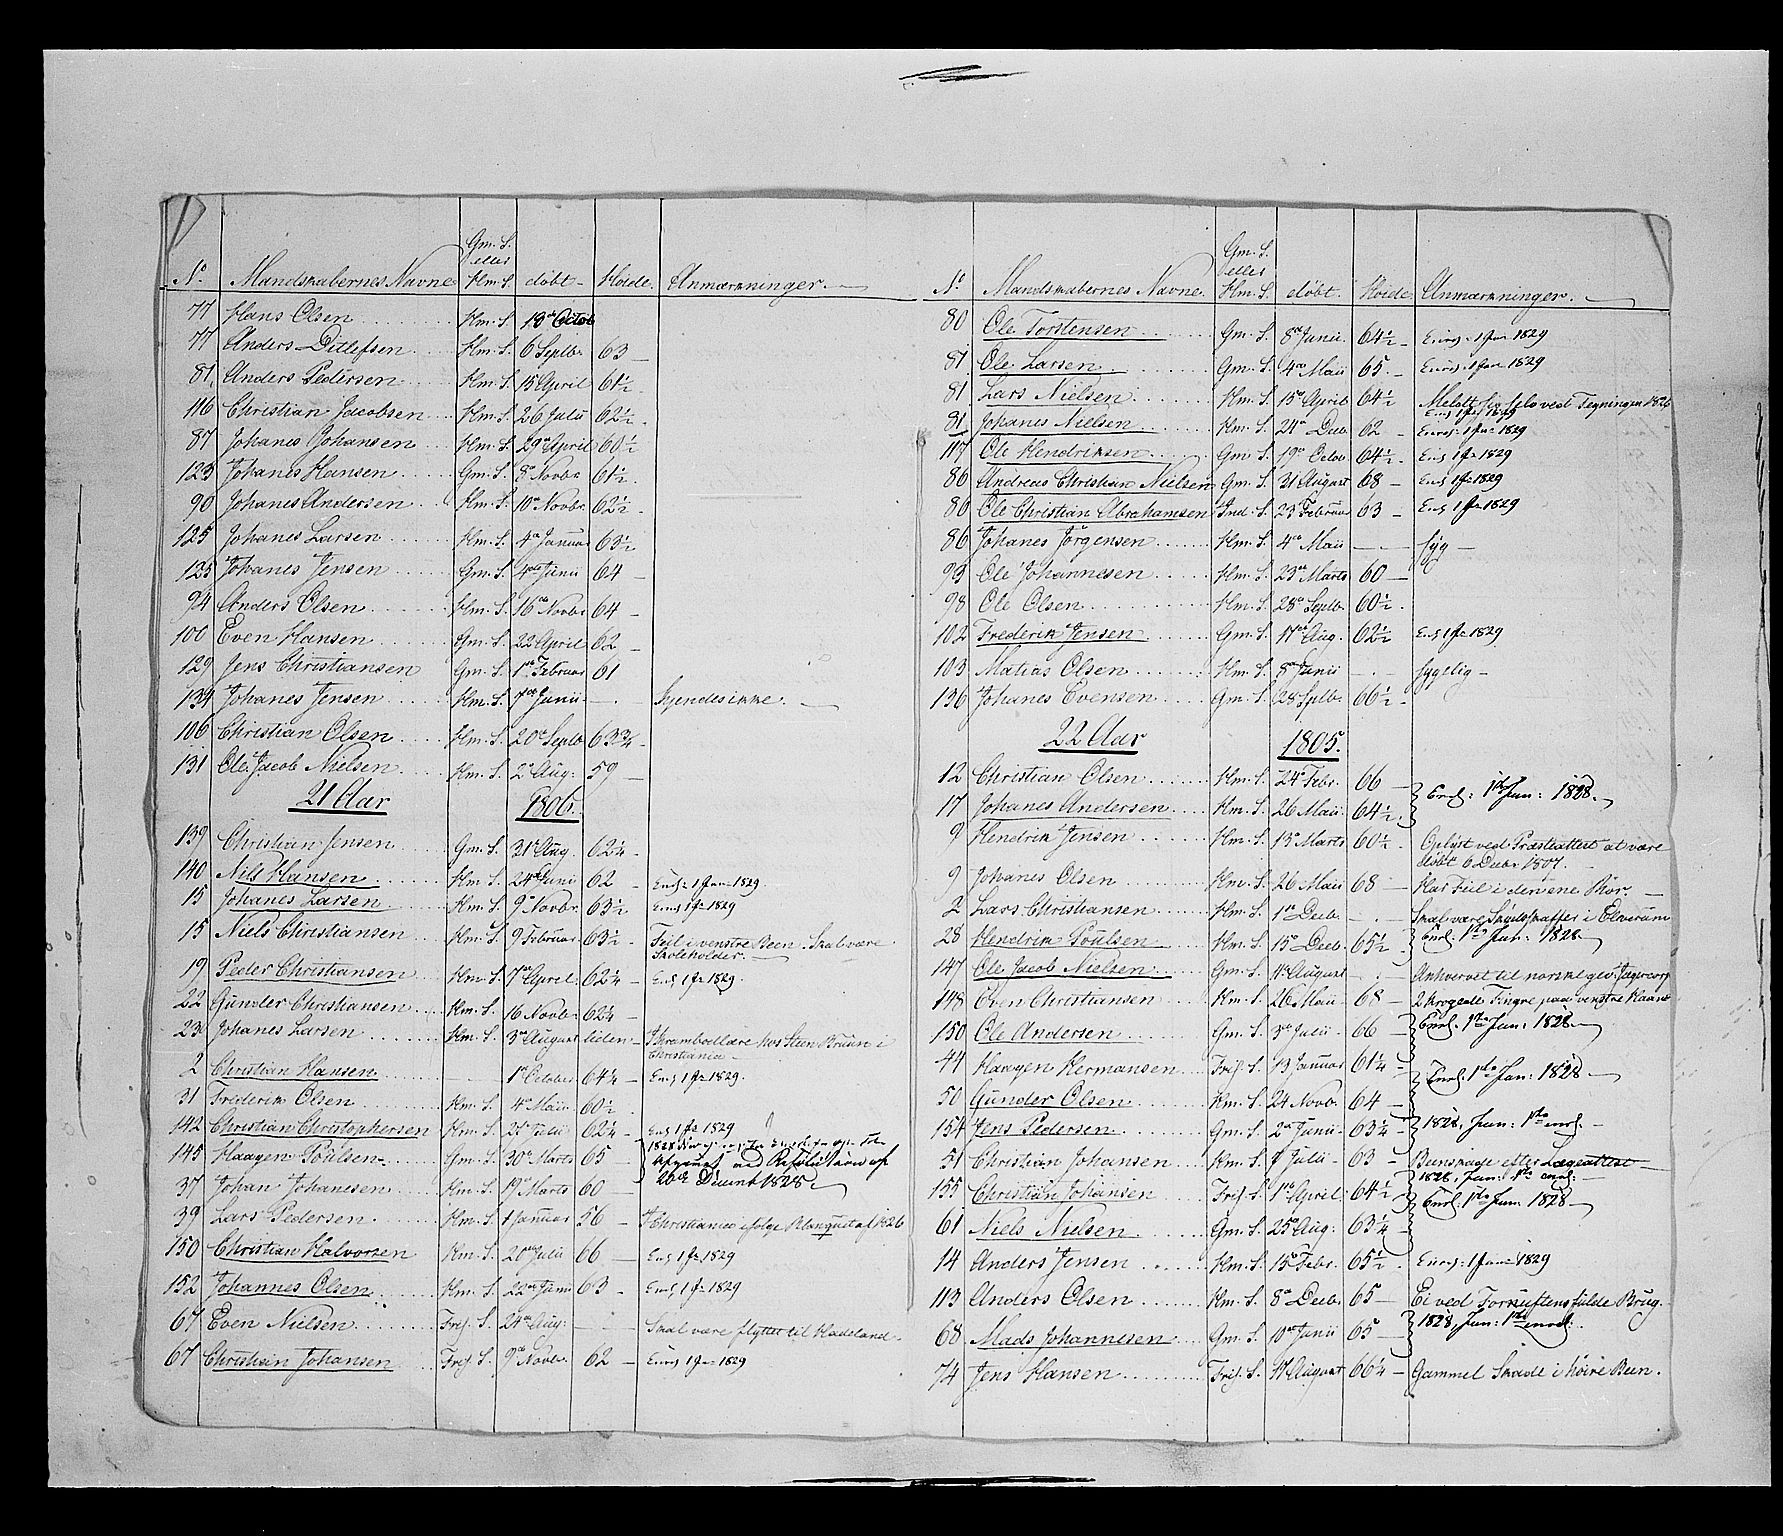 Gm. S.
eller
No Mandskabernes Navne Hm. S. döbt Höide. Anmærkninger.
77 Hans Olsen Hm. S. 13de Octob
77 Anders Ditlefsen Hm. S. 6 Septbr. 63
81 Anders Pedersen Hm. S. 15 April 61½
116 Christian Jacobsen Hm. S. 26 Julii 62½
87 Johanes Johansen Hm. S. 29de April 60½
123 Johanes Hansen Gm. S. 8de Novbr 61½
90 Johanes Andersen Hm. S. 10de Novbr. 62½
125 Johanes Larsen Hm. S. 4de Januar 63½
125 Johanes Jensen Gm. S. 4de Junii 64
94 Anders Olsen Hm. S. 16de Novbr 64
100 Even Hansen Gm. S. 22 April 62
129 Jens Christiansen Gm. S. 1ste Februar 61
134 Johanes Jensen Hm. S. 7de Junii Kjendes ikke.
106 Christian Olsen Hm. S. 20de Septb 63¾
131 Ole Jacob Nielsen Hm. S. 2de Aug: 59
21 Aar 1806.
139 Christian Jensen Gm. S. 31te Aug. 62¼
140 Nils Hansen Hm. S. 24de Juni 62 Enrl: 1 Jan 1829
15 Johanes Larsen Hm. S. 9de Novbr. 63½ Enrl 1 Jan 1829
15 Niels Christiansen Hm. S. 9 Februar 63½ Feil i venstre Been. Skal være
Skoleholder.
19 Peder Christiansen Hm. S. 7de April 62¼ Enrl 1 Jan 1829.
22 Gunder Christiansen Hm. S. 16 Novbr 62¼
23 Johanes Larsen Hm. S. 3de August liden I Krambodlære hos Steen Bruun i
Christiania
2 Christian Hansen 1ste October 64¼ Enrl 1 Jan 1829.
31 Frederik Olsen Hm. S. 4de Maii 60½
142 Christian Christophersen Hm. S. 21de Julii 62¼ Enrl 1 Jan 1829
145 Haagen Poulsen Hm. S. 30te Marts 65 1828
Afgaaet ved Resolution af
20de Decembr 1828
37 Johan Johanesen Hm. S. 19de Marts 60
39 Lars Pedersen Hm. S. 1 Januar 56 I Christiania ifölge 1826
150 Christian Halvorsen Hm. S. 20de Julii 66 Enrl 1 Jan 1829
152 Johannes Olsen Hm. S. 22de Junii 63 Enrl 1 Jan 1829
67 Even Nielsen Frij. S. 24de Aug: Skal være flyttet til Hadeland.
67 Christian Johansen Frij. S. 9de Novbr. 62 Enrl 1 Jan 1829
Gm. S.
eller
No Mandskabernes Navne Hm. S. döbt. Höide Anmærkninger.
80 Ole Torstensen Gm. S. 8de Junii. 64½ Enrl: 1 Jan 1829
81 Ole Larsen Gm. S. 4de Maii 65. Enrl: 1 Jan 1829
81 Lars Nielsen Hm. S. 15de April 64½ Meldt sig selv ved Tegningen 1826
Enrl 1 Jan 1829
81 Johanes Nielsen Hm. S. 24de Decb. 62 Enrl: 1 Jan 1829
117 Ole Hendriksen Gm. S. 19de Octbr. 64½ Enrl 1 Jan 1829
86 Andreas Christian Nielsen Gm. S. 31 August 68 Enrl 1 Jan 1829
86 Ole Christian Abrahamsen Ind. S. 23 Februar 63 Enrl 1 Jan 1829
86 Johanes Jörgensen Hm. S. 4de Maii Syg
93 Ole Johannesen Hm. S. 23de Marts 60
98 Ole Olsen Hm. S. 28de Septb. 60½
102 Frederik Jensen Gm. S. 17de Aug. 62½ Enrl 1 Jan 1829
103 Matias Olsen Hm. S. 8de Junii Sygelig
136 Johanes Evensen Gm. S. 28 Sptbr. 66½
22 Aar 1805.
12 Christian Olsen Hm. S. 24de Febr. 66 Enrl: 1ste Jan: 1828.
17 Johanes Andersen Hm. S. 26 Maii 64½
9 Hendrik Jensen Hm. S. 13de Marts 60½ Oplyst ved Præsteattest at være
döbt 6 Decbr 1807.
9 Johanes Olsen Hm. S. 26 Maii 68 Har Feil i den ene
2 Lars Christiansen Hm. S. 1ste Decb. Skal være Skydsskaffer i Elverum
28 Hendrik Poulsen Hm. S. 15de Decb. 65½ Enrl: 1ste Jan: 1828
147 Ole Jacob Nielsen Gm. S. 11te August Anhvervet til norske gev: Jægercorps
148 Even Christiansen Hm. S. 26 Maii 68 2 krogede Fingre paa venstre Haand
150 Ole Andersen Gm. S. 3de Julii 66 Enrl. 1ste Jan: 1828
44 Haagen Hermansen Frij. S. 19 Januar 61¼ Enrl: 1ste Jan: 1828
50 Gunder Olsen Hm. S. 24 Novb. 64
154 Jens Pedersen Gm. S. 2de Junii 63¼ 1828, Jan: 1ste enrl.
51 Christian Johansen Hm. S. 7 Julii 63 Beenskade efter Lægeattest
1828, Jan: 1ste enrl:
155 Christian Johansen Frij. S. 1ste April 64½ Enrl. 1ste Jan: 1828
61 Niels Nielsen Gm. S. 25de Aug: 63¼
14 Anders Jensen Hm. S. 15de Febr. 65½ Enrl: 1 Jan 1829
113 Anders Olsen Hm. S. 8de Decb. 65 Ei ved Fornuftens fulde Brug.
68 Mads Johannesen Gm. S. 10de Junii 65 1828, Jan: 1ste enrl:
74 Jens Hansen Frij. S. 17 August 66¼ Gammel Skade i höire Been.